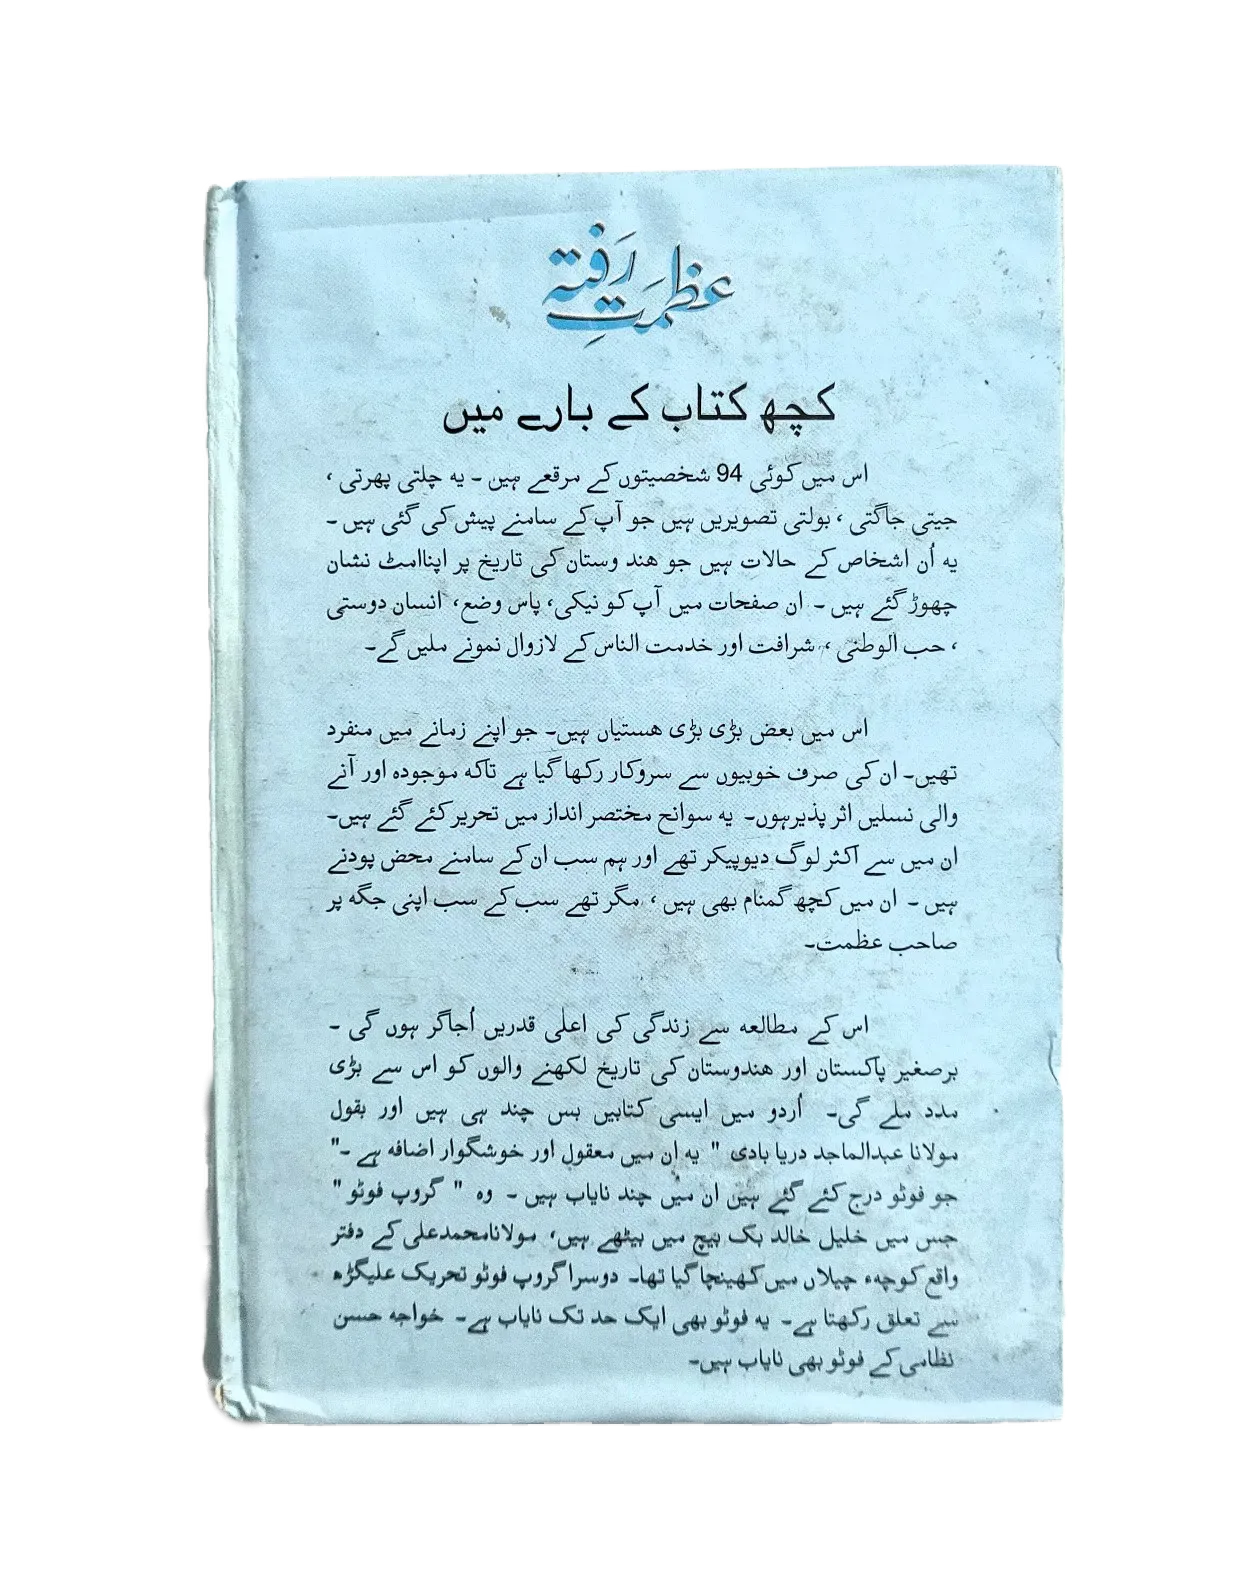 عظمتِ رَفتہ
کچھ کتاب کے بارے میں
اس میں کوئی 94 شخصیتوں کے مرقعے ہیں ۔ یہ چلتی پھرتی ،
جیتی جاگتی ، بولتی تصویریں ہیں جو آپ کے سامنے پیش کی گئی ہیں ۔
یہ اُن اشخاص کے حالات ہیں جو ھند وستان کی تاریخ پر اپناامٹ نشان
چھوڑ گئے ہیں ۔ ان صفحات میں آپ کو نیکی، پاس وضع، انسان دوستی
، حب الوطنی ، شرافت اور خدمت الناس کے لازوال نمونے ملیں گے۔
اس میں بعض بڑی بڑی ھستیاں ہیں۔ جو اپنے زمانے میں منفرد
تھیں۔ ان کی صرف خوبیوں سے سروکار رکھا گیا ہے تاکہ موجودہ اور آنے
والی نسلیں اثر پذیرہوں۔ یہ سوانح مختصر انداز میں تحریر کئے گئے ہیں۔
ان میں سے اکثر لوگ دیوپیکر تھے اور ہم سب ان کے سامنے محض پودنے
ہیں ۔ ان میں کچھ گمنام بھی ہیں ، مگر تھے سب کے سب اپنی جگہ پر
صاحب عظمت۔
اس کے مطالعہ سے زندگی کی اعلٰی قدریں اُجاگر ہوں گی ۔
برصغیر پاکستان اور ھندوستان کی تاریخ لکھنے والوں کو اس سے بڑی
مدد ملے گی۔ اُردو میں ایسی کتابیں بس چند ہی ہیں اور بقول
مولانا عبدالماجد دریا بادی " یہ ان میں معقول اور خوشگوار اضافہ ہے ۔"
جو فوٹو درج کئے گئے ہیں ان میں چند نایاب ہیں ۔ وہ " گروپ فوٹو "
جس میں خلیل خالد بک بیچ میں بیٹھے ہیں، مولانامحمدعلی کے دفتر
واقع کوچہء چیلاں میں کھینچا گیا تھا۔ دوسرا گروپ فوٹو تحریک علیگڑھ
سے تعلق رکھتا ہے۔ یہ فوٹو بھی ایک حد تک نایاب ہے۔ خواجہ حسن
نظامی کے فوٹو بھی نایاب ہیں۔